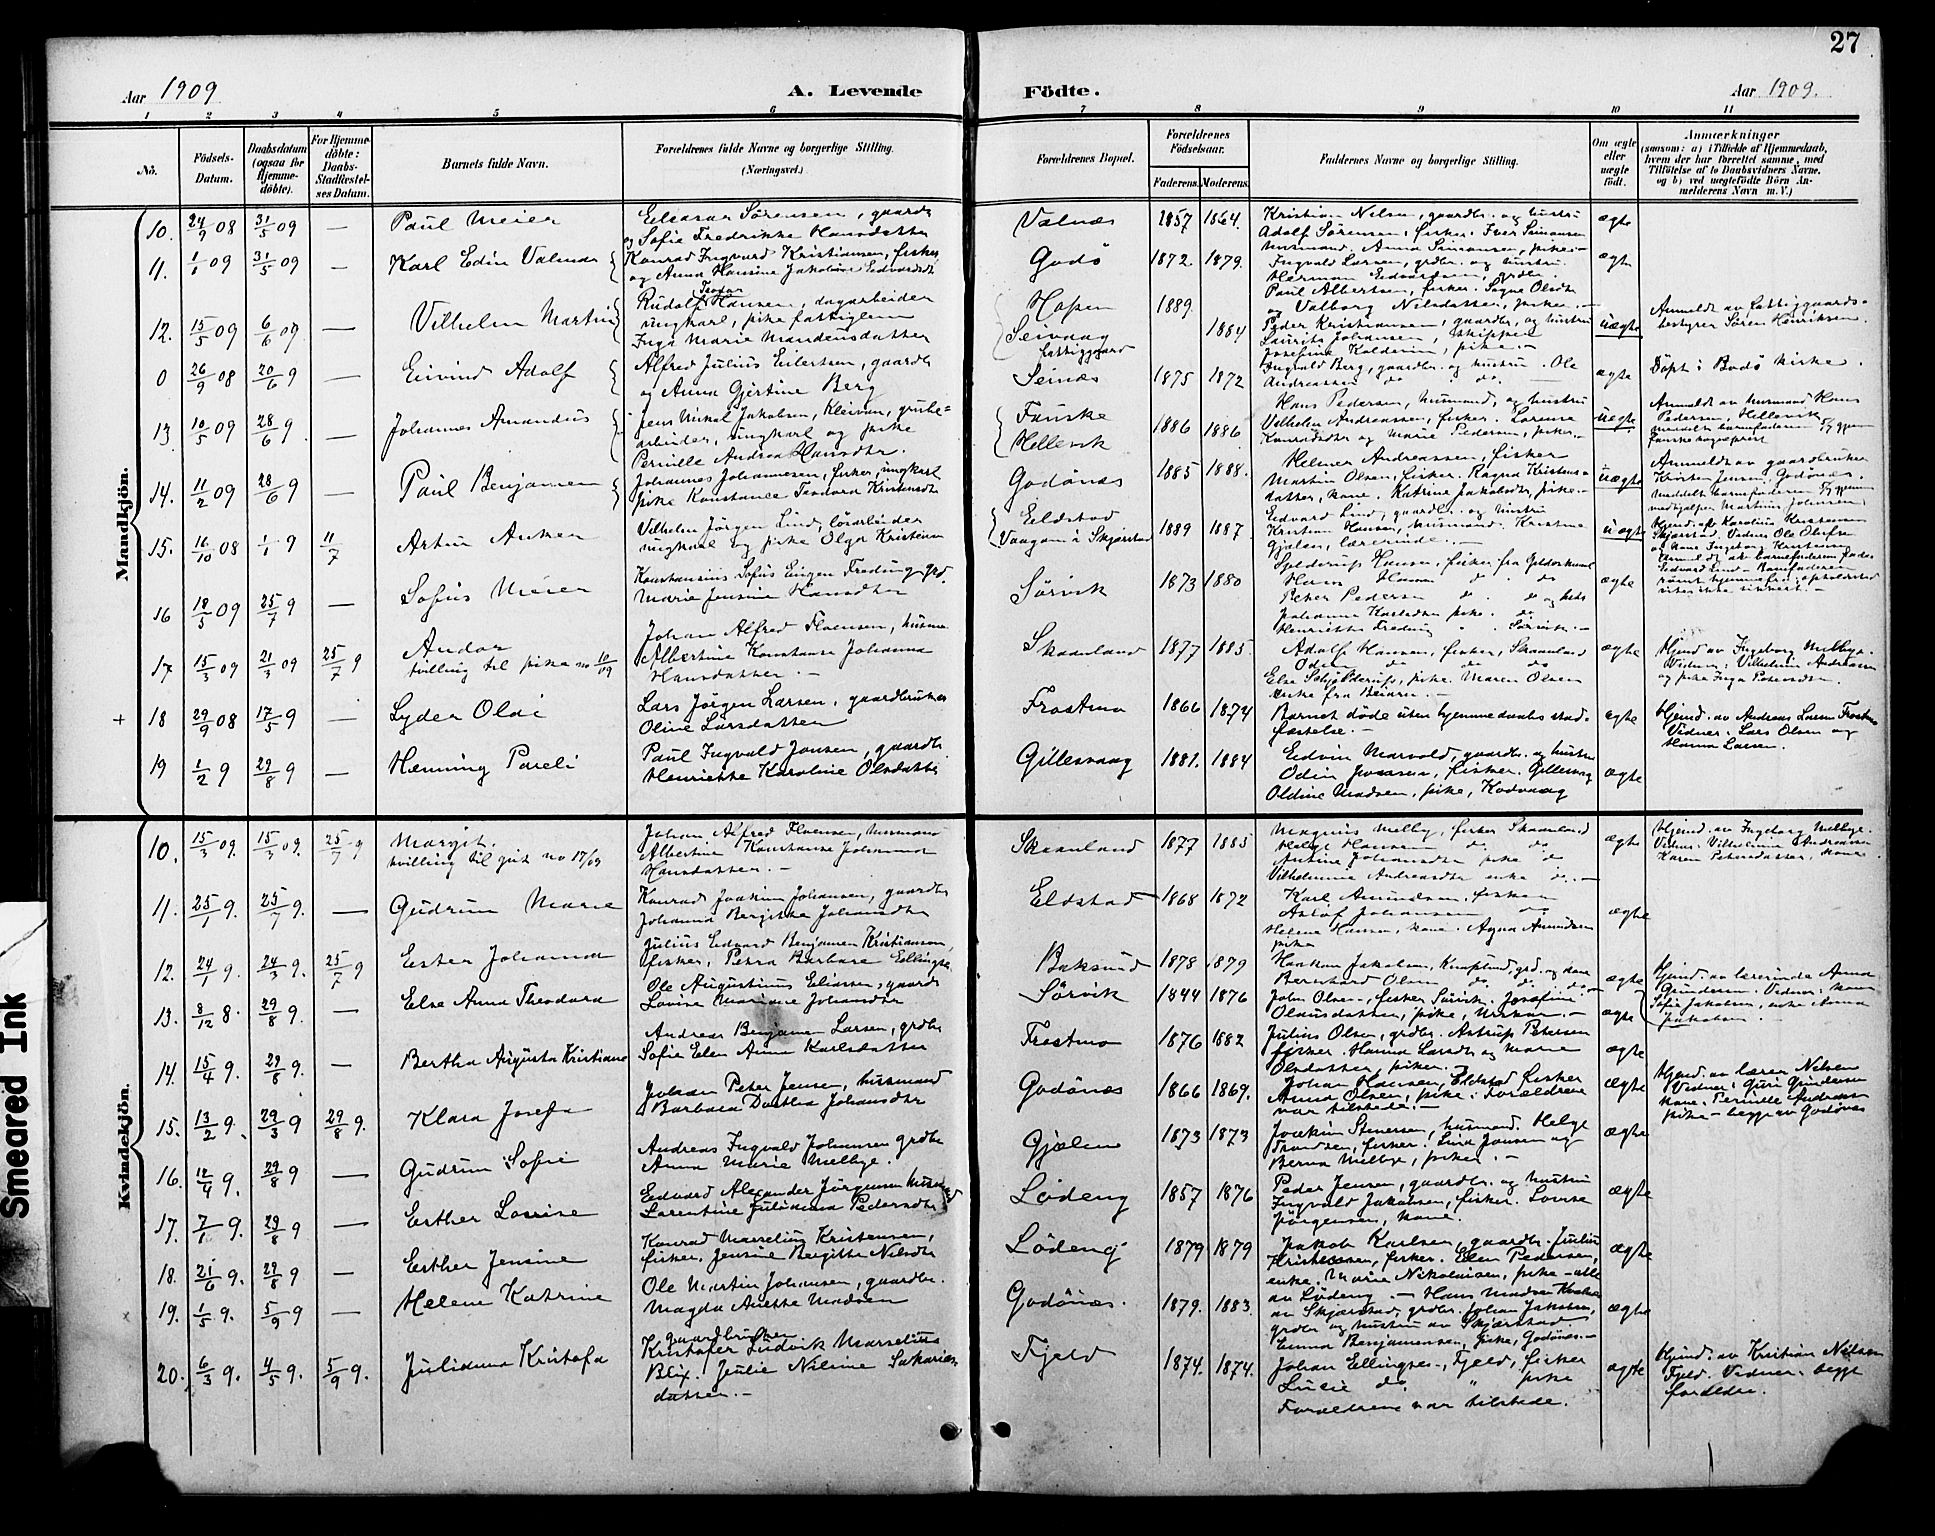 27
Aar 1909
A. Levende Födte.
Aar 1909.
1 2 3 4 5 6 7 8 9 10 11
No.
Födsels-Datum.
Daabsdatum (ogsaa for Hjemmedöbte).
For Hjemmedöbte: Daabs-Stadfæstelses Datum.
Barnets fulde Navn.
Forældrenes fulde Navne og borgerlige Stilling. (Næringsvei.)
Forældrenes Bopæl.
Forældrenes Födselsaar.
Faderens. Moderens.
Faddernes Navne og borgerlige Stilling.
Om ægte eller uægte födt.
Anmærkninger
(saasom: a) i Tilfælde af Hjemmedaab, hvem der har forrettet samme, med Tilföielse af to Daabsvidners Navne, og b) ved uægtefödte Börn Anmelderens Navn m. V.)
Mandkjön.
10. 24/9 08 31/5 09 — Paul Meier
Eliasar Sörensen, gaardb
og Sofie Fredrikke Hansdatter
Valnæs 1857 1864.
Kristian Nilsen, gaardbr. og hustru
Adolf Sörensen, fisker. Iver Simonsen
husmand. Anna Simonsen, pike.
ægte
11. 1/1 09 31/5 09 — Karl Edin Valinder
Konrad Ingvard Kristiansen, fisker
og Anna Hansine Jakobine Edvardsdt
Godö 1872. 1879.
Ingvald Larsen, grdbr. og hustru.
Herman Edvardsen, grdbr.
ægte
12. 15/5 09 6/6 09 — Vilhelm Martin
Rudolf Teodor Hansen, dagarbeider
ungkarl, pike fattiglem
Inga Marie Mandeusdatter
Hopen
Seivaag fattiggaard
1889. 1884
Paul Albertsen, fisker. Signe Olsdtr
og Valborg Nilsdatter, piker. —
Peder Kristiansen, gaardbr, og hustru
Laurits Johansen, skipper
Josefine Kolderup, pike. —
uægte
Anmeldt av fattiggaards-
bestyrer Sören Henriksen.
0 26/9 08 20/6 9 — Eivind Adolf
Alfred Julius Eilertsen, gaardbr
og Anna Gjertine Berg
Seinæs 1875 1872
Ingvald Berg, gaardbr. og hustru. Ole
Andreassen do do. —
ægte
Döpt i Bodö kirke.
13 10/5 09 28/6 9. — Johannes Amandus
Jens Mikal Jakobsen, Kleivan, grube-
arbeider, ungkarl og pike
Pernille Andrea Hansdtr.
Fauske
Hellevik
1886 1886
Hans Pedersen, husmand, og hustru
Vilhelm Andreassen, fisker. Lorense
Konradsdtr og Marie Pedersen, piker. —
uægte
Anmeldt av husmand Hans
Pedersen, Hellevik
meddelt barnefaderen
14. 11/2 09 28/6 9 — Paul Benjamin
Johannes Johannesen, fisker, ungkarl
pike Konstance Teodora Kristensdt
Godönæs 1885 1888.
Helmer Andreassen, fisker
Martin Olsen, fisker. Ragna Kristens-
datter, kone. Katrine Jakobsdtr, pike. —
uægte
Anmeldt av gaardbruker
Kristen Jensen, Godönæs.
meddelt barnefaderen
15. 16/10 08 1/1 9 11/7 Artur Anker
Vilhelm Jörgen Lind, lösarbeider
ungkarl og pike Olga Kristensen
Eeldstad
Vaagan i Skjerstad
1889 1887
Eedvard Lind, gaardbr. og hustru
Kristian Hansen, husmand. Kristine
Gjolsen, lærerinde. —
uægte
Skjerstad. Vidner Ole Olufsen
og kone Ingeborg Kristensen
16 18/5 09 25/7 9 — Sofus Meier
Konstansius Sofus Eugen Freding, grd.
Marie Jensine Hansdtr
Sörvik 1873 1880
Hans Hansen do do
Peter Pedersen do
Johanna Karlsdtr pike. do
Henriette Freding Sörvik. —
ægte
17 15/3 09 21/3 09 25/7 9 Andor
tvilling til pike no 10/09
Johan Alfred Floensen, husma
Albertine Konstanse Johanna
Hansdatter. —
Skaanland 1877 1885.
Adolf Hansen, fisker, Skaanland
Odin do do do
Else Schjölderup, pike. Maren Olsen
enke fra Beiarn. —
ægte
Hjemd. av Ingeborg Melbye.
Vidner: Vilhelmine Andreassen
og pike Inga Petersdtr.
+ 18 29/9 08 17/5 9 — Lyder Olai
Lars Jörgen Larsen, gaardbruker
Oline Larsdatter
Frostmo 1866 1874
Barnet döde uten hjemmedaabs stad-
fæstelse. —
ægte
Hjemd. av Andreas Larsen Frostmo
Vidner: Lars Olsen og
Hanna Larsen.
19 1/2 9 29/8 9 — Henning Pareli
Paul Ingvald Jensen, gaardbr
Henriette Karoline Olsdatter
Gillesvaag 1881. 1884
Edvin Marvold, gaardbr. og hustru
Odin Jonassen, fisker. Gillesvag
Oldine Madsen, pike, Kodvaag
ægte
Kvindekjön.
10. 15/3 09. 15/3 09. 25/7 9 Margit.
tvilling til gut no 17/09
Johan Alfred Floensen, husmand
Albertine Konstanse Johanna
Hansdatter. —
Skaanland 1877 1885
Magnus Melby, fisker Skaanland
Helge Hansen do do
Antine Johansdtr pike do
Vilhelmine Andreasdtr enke do. —
ægte
Hjemd. av Ingeborg Melbye.
Vidner: Vilhelmine Andreassen
Karen Petersdatter, kone.
11. 25/1 9. 25/7 9. — Gudrun Marie
Konrad Joakim Johansen, gaardbr
Johanna Bergitte Johansdtr
Eldstad 1868 1872
Karl Amundsen, fisker
Aslöf Johansen do
Helene Hansen, kone. Agna Amundsen
pike
ægte
12. 24/1 9. 24/3 9. 25/7 9 Ester Johanna
Julius Edvard Benjamin Kristiansen,
fisker, Petra Barbara Ellingsd.
Baksund 1878 1879
Haakon Jakobsen, Knaplund, grd. og kone
Bernhard Olsen do do do
ægte
Hjemd. av lærerinde Anna
Gundersen. Vidner: kone
Sofie Jakobsen, enke Anna
Jakobsen. —
13. 8/12 8. 29/8 9. — Else Anna Theodora
Ole Augustinus Eliassen, gaardb
Lovise Mariane Johansdtr
Sörvik 1844 1876
John Olsen, fisker Sörvik. Josefine
Olausdatter, pike,
ægte
14. 15/4 9. 29/8 9. — Bertha Augusta Kristiane
Andreas Benjamin Larsen, grdbr
Sofie Elen Anna Karlsdatter
Frostmo 1876 1882
Julius Olsen, grdbr. Astrup Petersen
fisker. Hanna Larsdtr og Marie
Olsdatter, piker.
ægte
15. 13/2 9. 29/3 9 29/8 9. Klara Josefa
Johan Peter Jensen, husmand
Barbara Dorthea Johansdtr
Godönæs 1866 1869.
Johan Hansen, Eldstad, fisker
Anna Olsen, pike. Forældrene
var tilstede. —
ægte
Hjemd. av lærer Nilsen
Vidner: Guri Gundersen
kone. Pernille Andreassen
pike — begge av Godönæs
16. 12/4 9. 29/8 9 — Gudrun Sofie
Andreas Ingvald Johansen grdbr
Anna Marie Melbye.
Gjælen 1873 1873
Joakim Stenersen, husmand. Helge
Trondsen, fisker. Lina Jonsen og
Berna Melbye, piker. —
ægte
17. 7/1 9. 29/8 9 — Esther Lovise
Eedvard Alexander Jörgensen husmand
Lorentine Julianna Pedersdtr
Lödeng 1857 1876
Peder Jensen, gaardbr. og hustru
Ingvald Jakobsen, fisker. Lovise
Jörgensen, kone.
ægte
18. 21/6 9. 29/8 9 — Esther Jensine
Konrad Marselius Kristensen,
fisker, Jensine Bergitte Nilsdtr
Lödeng 1879 1879
Jakob Karlsen, gaardbr. Julius
Kristensen, fisker. Elen Pedersen,
enke. Marie Nikolaisen, pike — alle
av Lödeng. —
ægte
19. 1/5 9. 5/9 9 — Helene Katrine
Ole Martin Johansen, gaardbr.
Magda Anette Madsen
Godönæs. 1879. 1883.
Hans Madsen
av Skjerstad, grdbr. Johan Jakobsen,
grdbr og hustru av Skjærstad
Emma Benjaminsen, pike, Godönæs. —
ægte
20. 6/3 9. 4/5 9. 5/9 9. Julianna Kristofa
gaardbruker
Kristofer Ludvik Marselius
Blix. Julie Nilsine Sakarias-
datter. —
Fjeld 1874. 1874.
Johan Ellingsen, Fjeld, fisker
Lucie do. " pike
Forældrene var tilstede.
ægte
Hjemd. av Kristian Nilsen
Fjeld. Vidner: begge
forældre.
Smeared Ink